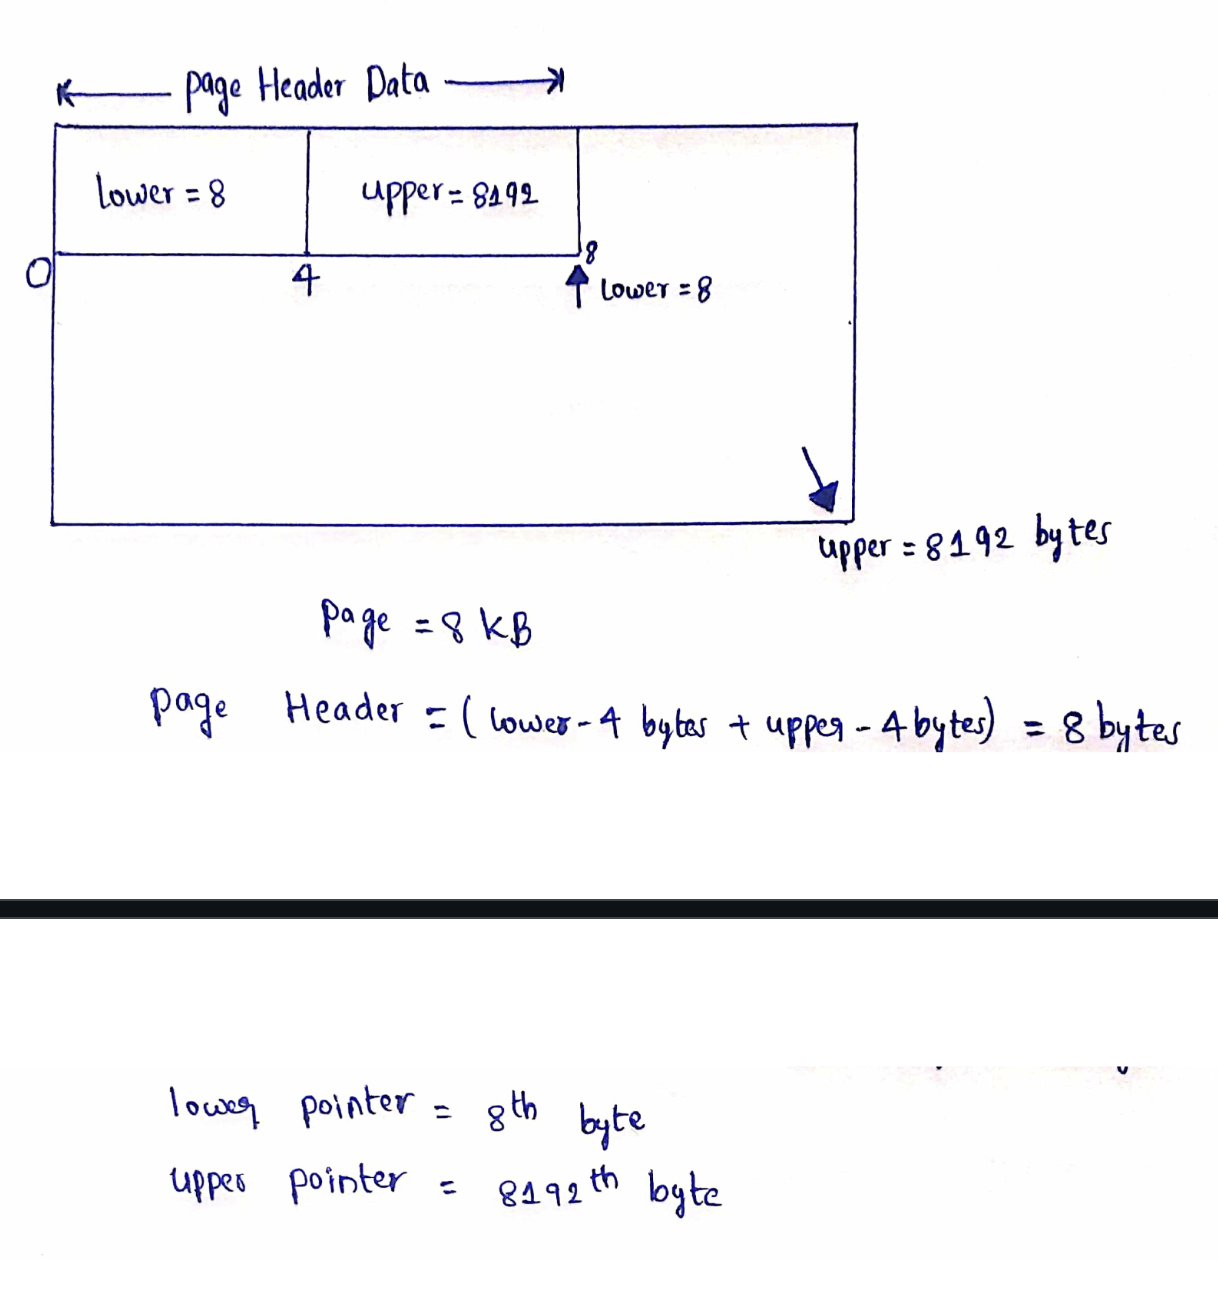 page Header Data
lower = 8
upper = 8192
0
4
8
lower = 8
upper = 8192 bytes
page = 8 KB
page Header = ( lower - 4 bytes + upper - 4 bytes) = 8 bytes
lower pointer = 8th byte
upper pointer = 8192th byte